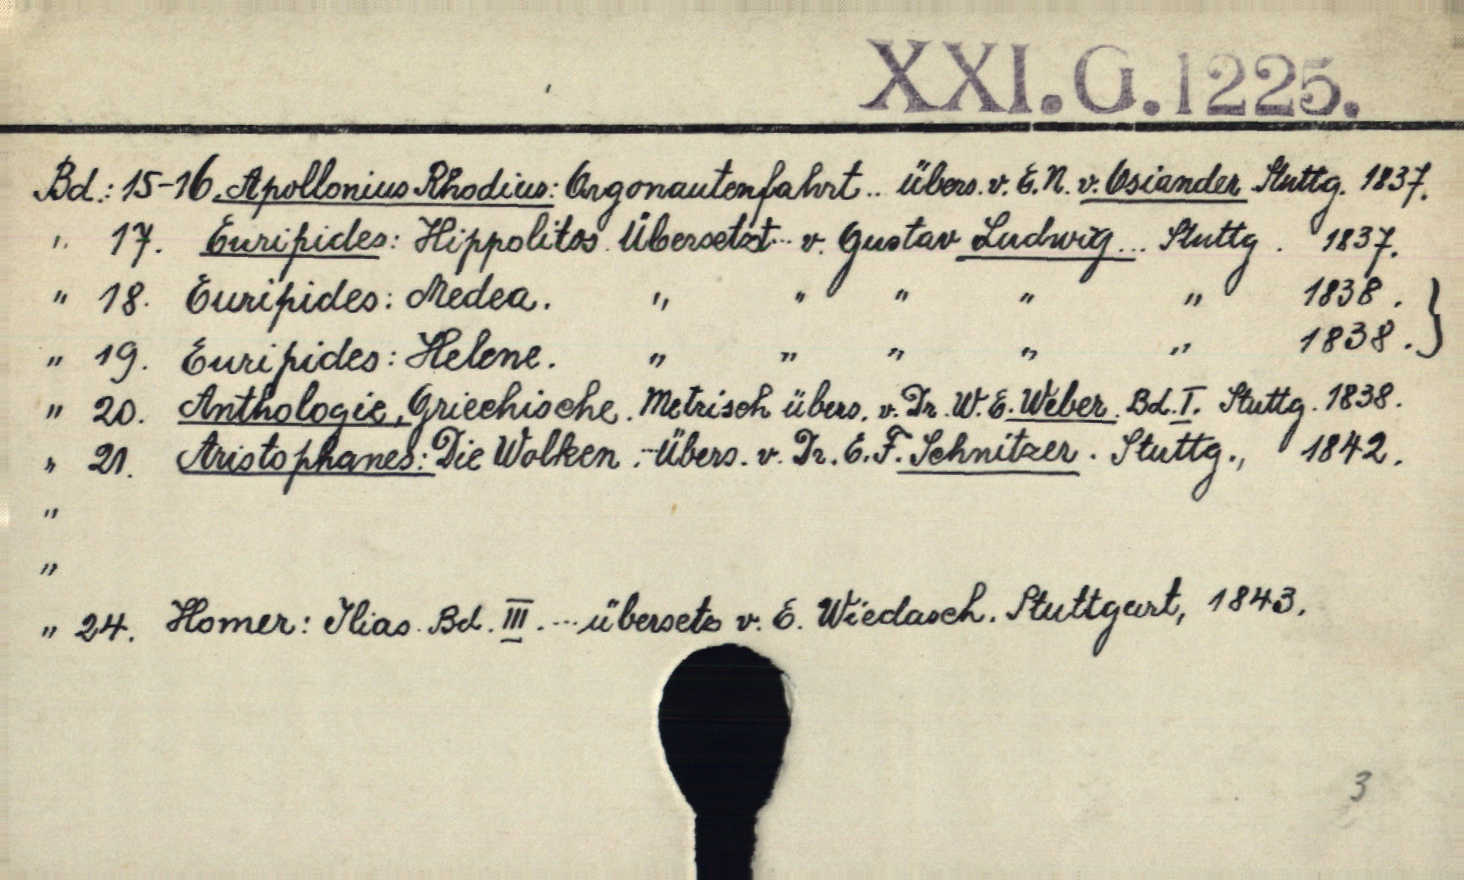 XXI.G.1225.
Bd.: 15-16. Apollonius Rhodius: Argonautenfahrt.. übers. v. C. N. v. Osiander Stuttg. 1837.
" 17. Euripides: Hippolitos. Übersetzt... v. Gustav Ludwig... Stuttg. 1837.
" 18. Euripides: Medea. " " " " " 1838. }
" 19. Euripides: Helene. " " " " " 1838. }
" 20. Anthologie, Griechische. Metrisch übers. v. Dr. W. E. Weber. Bd. I. Stuttg. 1838.
" 21. Aristophanes: Die Wolken. - Übers. v. Dr. C. F. Schnitzer. Stuttg., 1842.
"
"
" 24. Homer: Ilias. Bd. III. ... übersetz v. E. Wiedasch. Stuttgart, 1843.
3